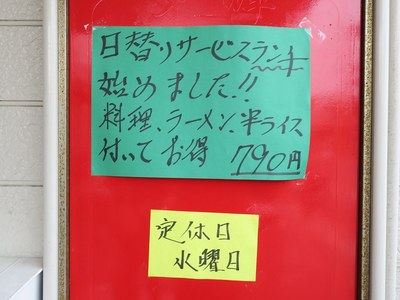 日替りサービスランチ
始めました!!
料理、ラーメン、半ライス
付いてお得 790円
定休日
水曜日